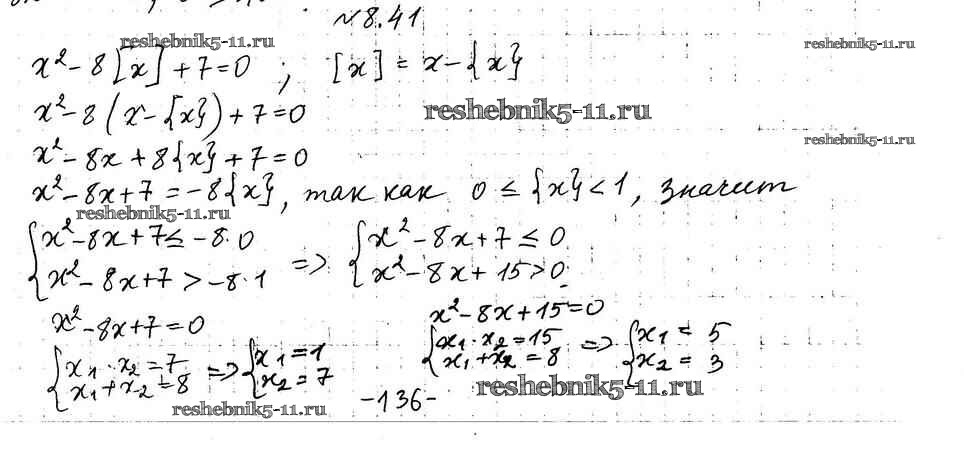 №8.41
reshebnik5-11.ru
reshebnik5-11.ru
x² - 8[x] + 7 = 0 ; [x] = x - {x}
x² - 8(x - {x}) + 7 = 0
reshebnik5-11.ru
reshebnik5-11.ru
x² - 8x + 8{x} + 7 = 0
x² - 8x + 7 = -8{x}, так как 0 ≤ {x} < 1, значит
reshebnik5-11.ru
{x² - 8x + 7 ≤ -8·0 {x² - 8x + 7 ≤ 0
{x² - 8x + 7 > -8·1 => {x² - 8x + 15 > 0
x² - 8x + 7 = 0 x² - 8x + 15 = 0
{x₁·x₂ = 7 => {x₁ = 1 {x₁·x₂ = 15 => {x₁ = 5
{x₁ + x₂ = 8 {x₂ = 7 {x₁ + x₂ = 8 {x₂ = 3
reshebnik5-11.ru
reshebnik5-11.ru
-136-